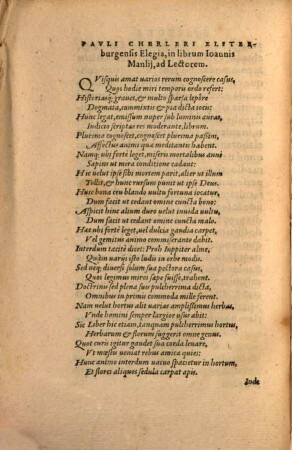 PAVLI CHERLERI ELSTER-
burgensis Elegia, in librum Ioannis
Manlij, ad Lectorem.
QVisquis amat uarios rerum cognoscere casus,
Quos hodie miri temporis ordo refert:
Historiasq́; graues, & multo sparsa lepôre
Dogmata, cummintis & pia dicta iocis:
Hunc legat, emissum nuper sub luminis auras,
Indicio scriptus res moderante, librum.
Plurima cognoscet, cognoscet plurima passim,
Affectus animi qua meditantis habent.
Namq́; ubi fortè leget, miseri mortalibus anni
Sapius ut mira conditione cadant:
Hic uelut ipse sibi mortem parit, alter ut illum
Tollit, & hunc rursum punit ut ipse Deus.
Huic bona ceu blando uultu fortuna iocatur,
Dum facit ut cedant omine cuncta bono:
Aspicit hinc alium duro uelut inuida uultu,
Dum facit ut cedant omine cuncta malo.
Hæc ubi fortè leget, uel dulcia gaudia carpet,
Vel gemitus animo commiserante dabit.
Interdum tacitè dicet: Proh Iuppiter alme,
Quàm uarijs isto ludis in orbe modis.
Sed neq́; diuersi solùm sua pectora casus,
Quos legimus miros sæpe fuisse, trahent.
Doctrinis sed plena suis pulcherrima dicta,
Omnibus in primis commoda mille ferent.
Nam uelut hortus alit uarias amplissimus herbas,
Vnde homini semper largior usus abit:
Sic Liber hic etiam, tanquam pulcherrimus hortus,
Herbarum & florum suggerit omne genus.
Quot curis igitur gaudet sua corda leuare,
Vt mœstis ueniat rebus amica quies:
Hunc animo interdum uacuo spacietur in hortum,
Et flores aliquot sedula carpat apis.
Inde